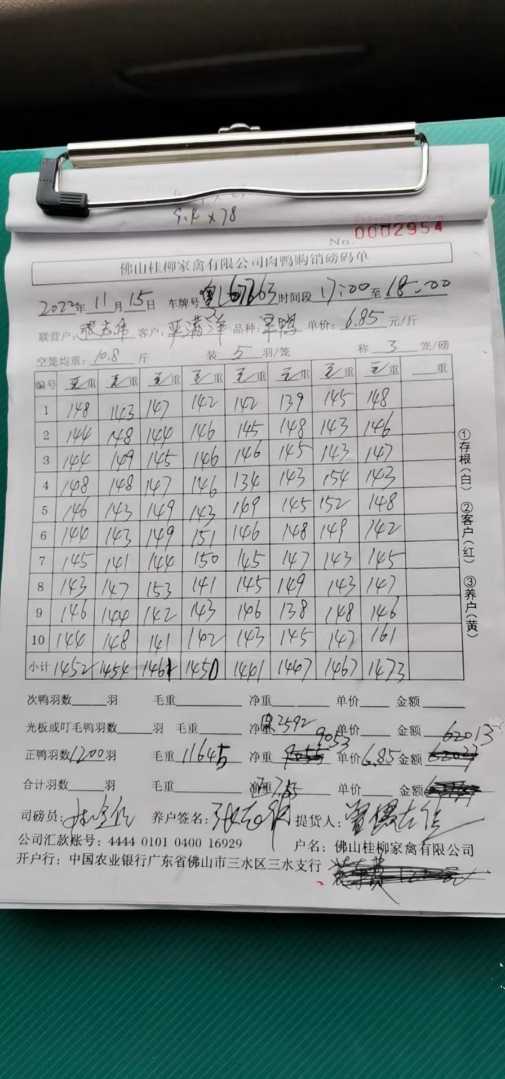 5.4 x 78
No. 0002954
佛山桂柳家禽有限公司肉鸭购销磅码单
2022年 11月 15日 车牌号 67263 时间段 17:00 至 18:00
联营户: 客户: 品种: 单价: 6.85 元/斤
空笼均重: 10.8 斤 装 5 羽/笼 称 3 笼/磅
编号 毛重 毛重 毛重 毛重 毛重 毛重 毛重 毛重 重
1 148 143 147 142 142 139 145 148
2 144 148 144 146 145 148 143 146
3 144 149 145 146 146 145 143 147
4 148 147 146 134 143 154 143
5 146 143 149 143 145 152 148
6 144 143 149 151 146 148 149 142
7 145 141 144 150 145 147 143 145
8 143 147 153 141 145 149 143 147
9 146 144 142 143 146 138 148 146
10 144 148 141 142 143 145 147 161
小计 1452 1454 1461 1450 1441 1447 1467 1473
①存根(白) ②客户(红) ③养户(黄)
次鸭羽数 羽 毛重 净重 单价 金额
光板或叮毛鸭羽数 羽 毛重 净重 2592 单价 金额 62013
正鸭羽数 1200 羽 毛重 11645 净重 9053 单价 6.85 金额
合计羽数 羽 毛重 净重 单价 金额
司磅员: 养户签名: 提货人:
公司汇款账号: 4444 0101 0400 16929 户名: 佛山桂柳家禽有限公司
开户行: 中国农业银行广东省佛山市三水区三水支行